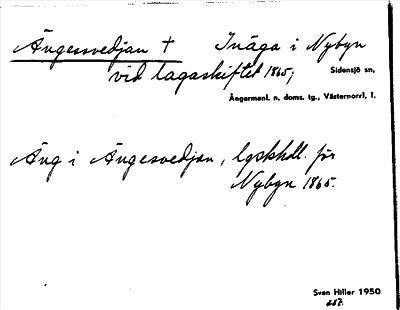 Ängessvedjan † Inäga i Nybyn
vid lagaskiftet 1865; Sidensjö sn,
Ångermanl. n. doms. tg., Västernorrl, l.
Äng i Ängesvedjan, lgskhdl. för
Nybyn 1865.
Sven Hiller 1950
287.